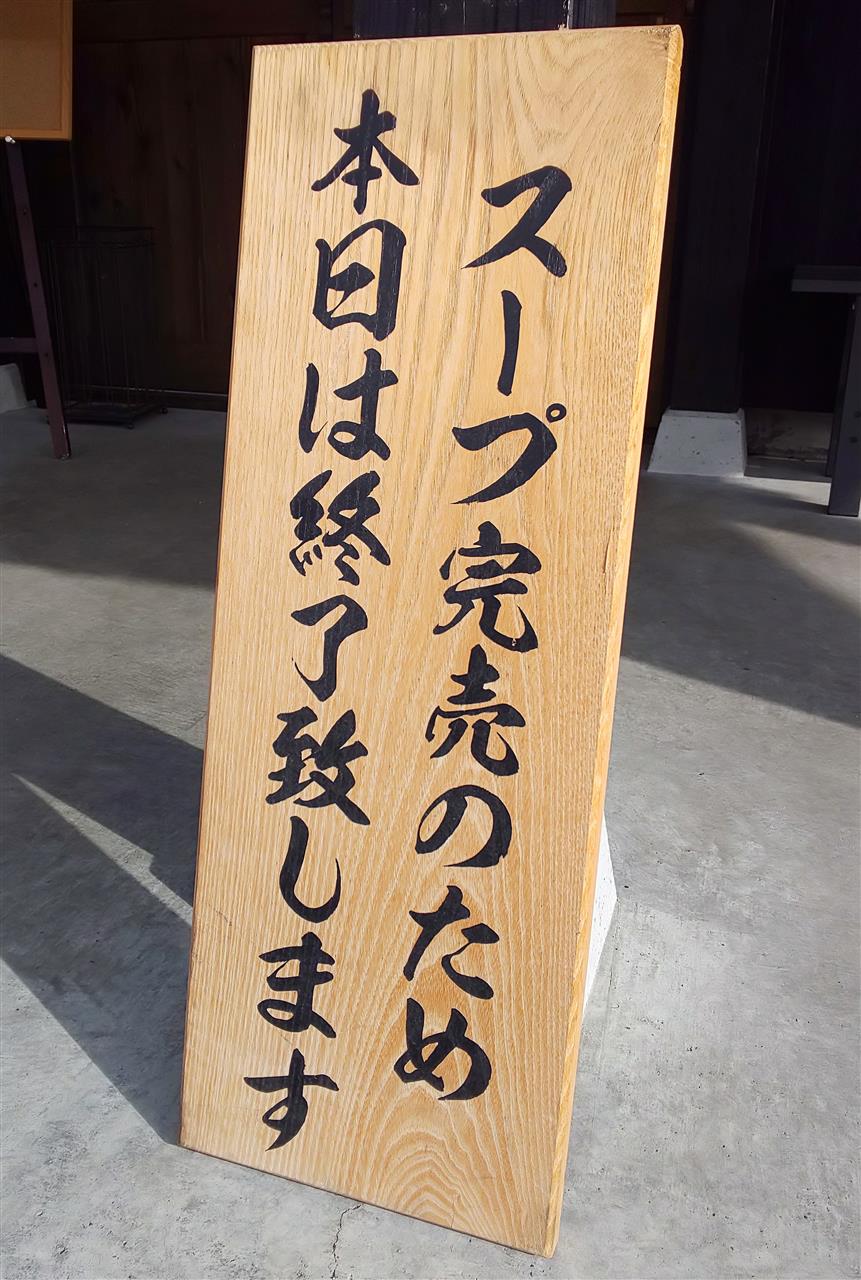 スープ完売のため
本日は終了致します